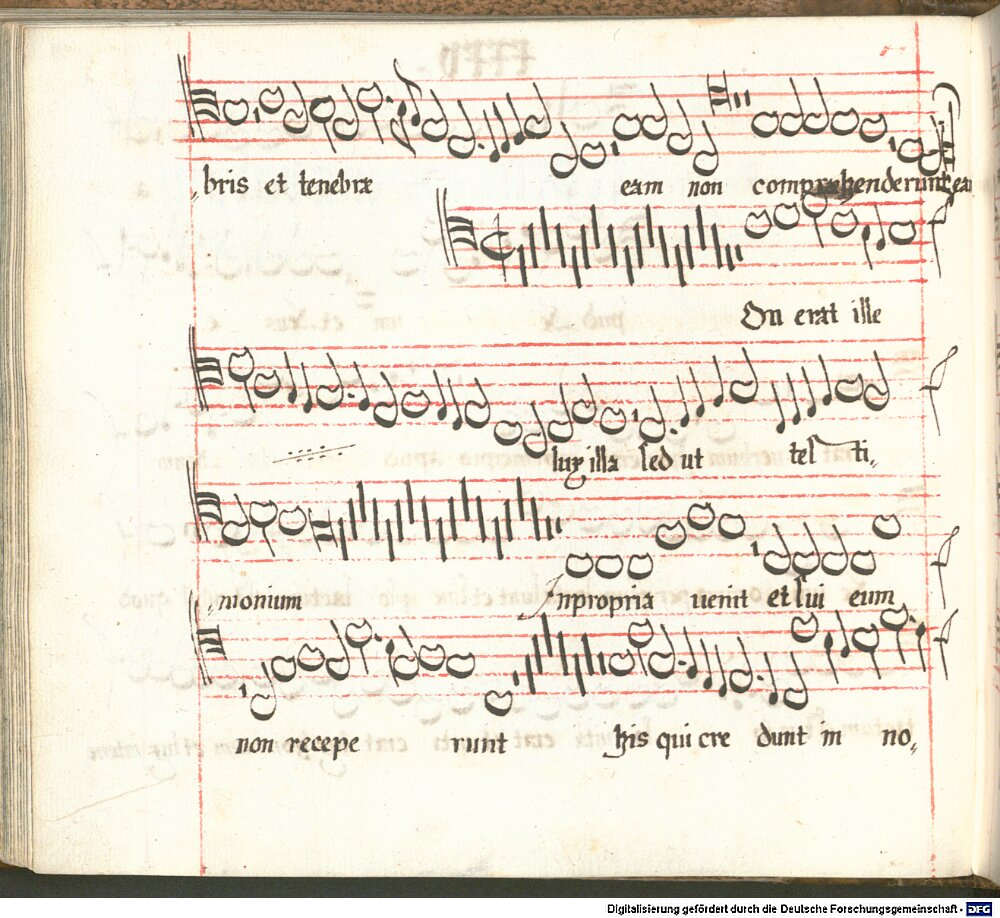 bris et tenebræ eam non comprehenderunt ea
On erat ille
lux illa sed ut tes ti,,
monium Inpropria uenit et sui eum
non recepe runt his qui cre dunt in no,,
Digitalisierung gefördert durch die Deutsche Forschungsgemeinschaft - DFG